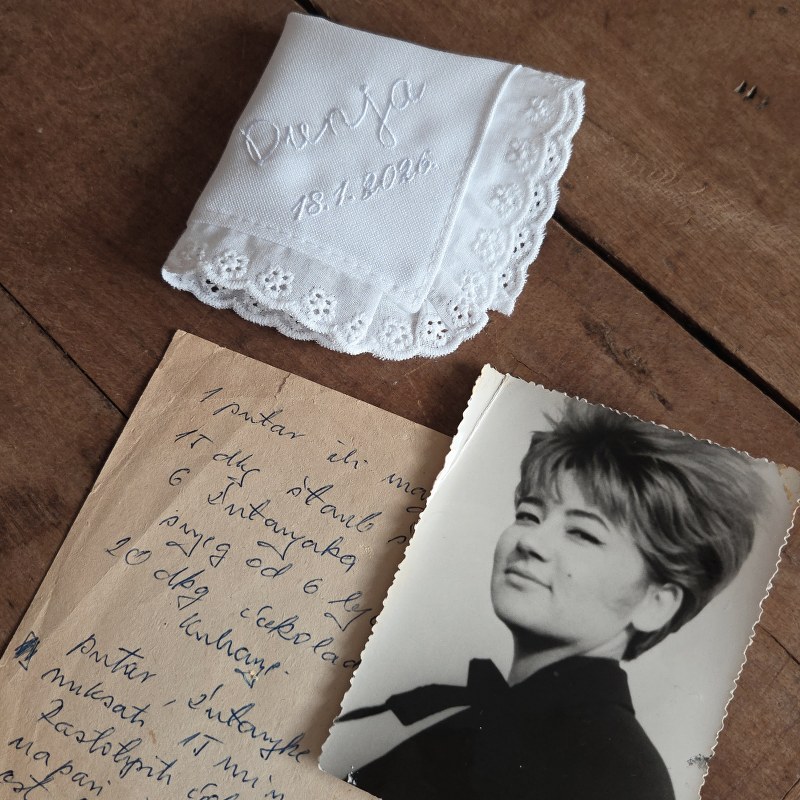 Dunja
18.1.2026.
1 putar ili
15 dkg štaub
6 žutanjaka
snjeg od 6
20 dkg čokolad
Kuhanje.
putar, žutanjke
miksati 15 min
Rastopiti
na pari